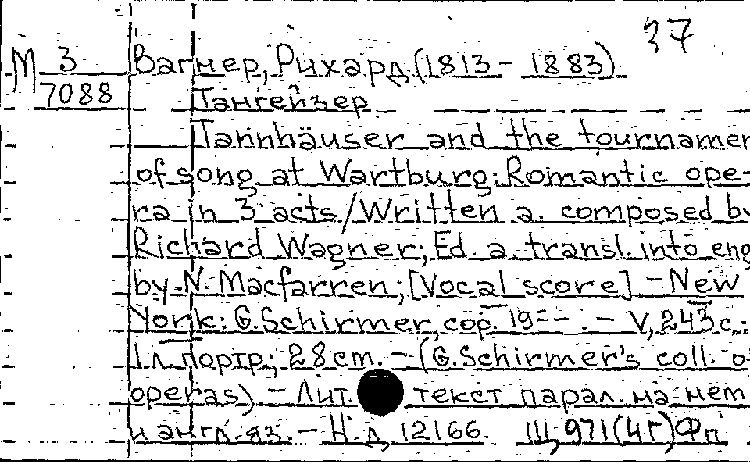 37
М 3 Вагнер, Рихард (1813 - 1883)
7088 Тангейзер
Tannhäuser and the tournamen
of song at Wartburg: Romantic ope-
ra in 3 acts / Written a. composed by
Richard Wagner; Ed. a. transl. into eng
by N. Macfarren; [Vocal score] - New
York: G. Schirmer, cop. 19--. - V, 243 с.:
1 л. портр.; 28 cm. - (G. Schirmer's coll. o
operas) - Лит. текст парал. на нем
и англ. яз. - Н. д. 12166. Ш, 971(4Г)Фп